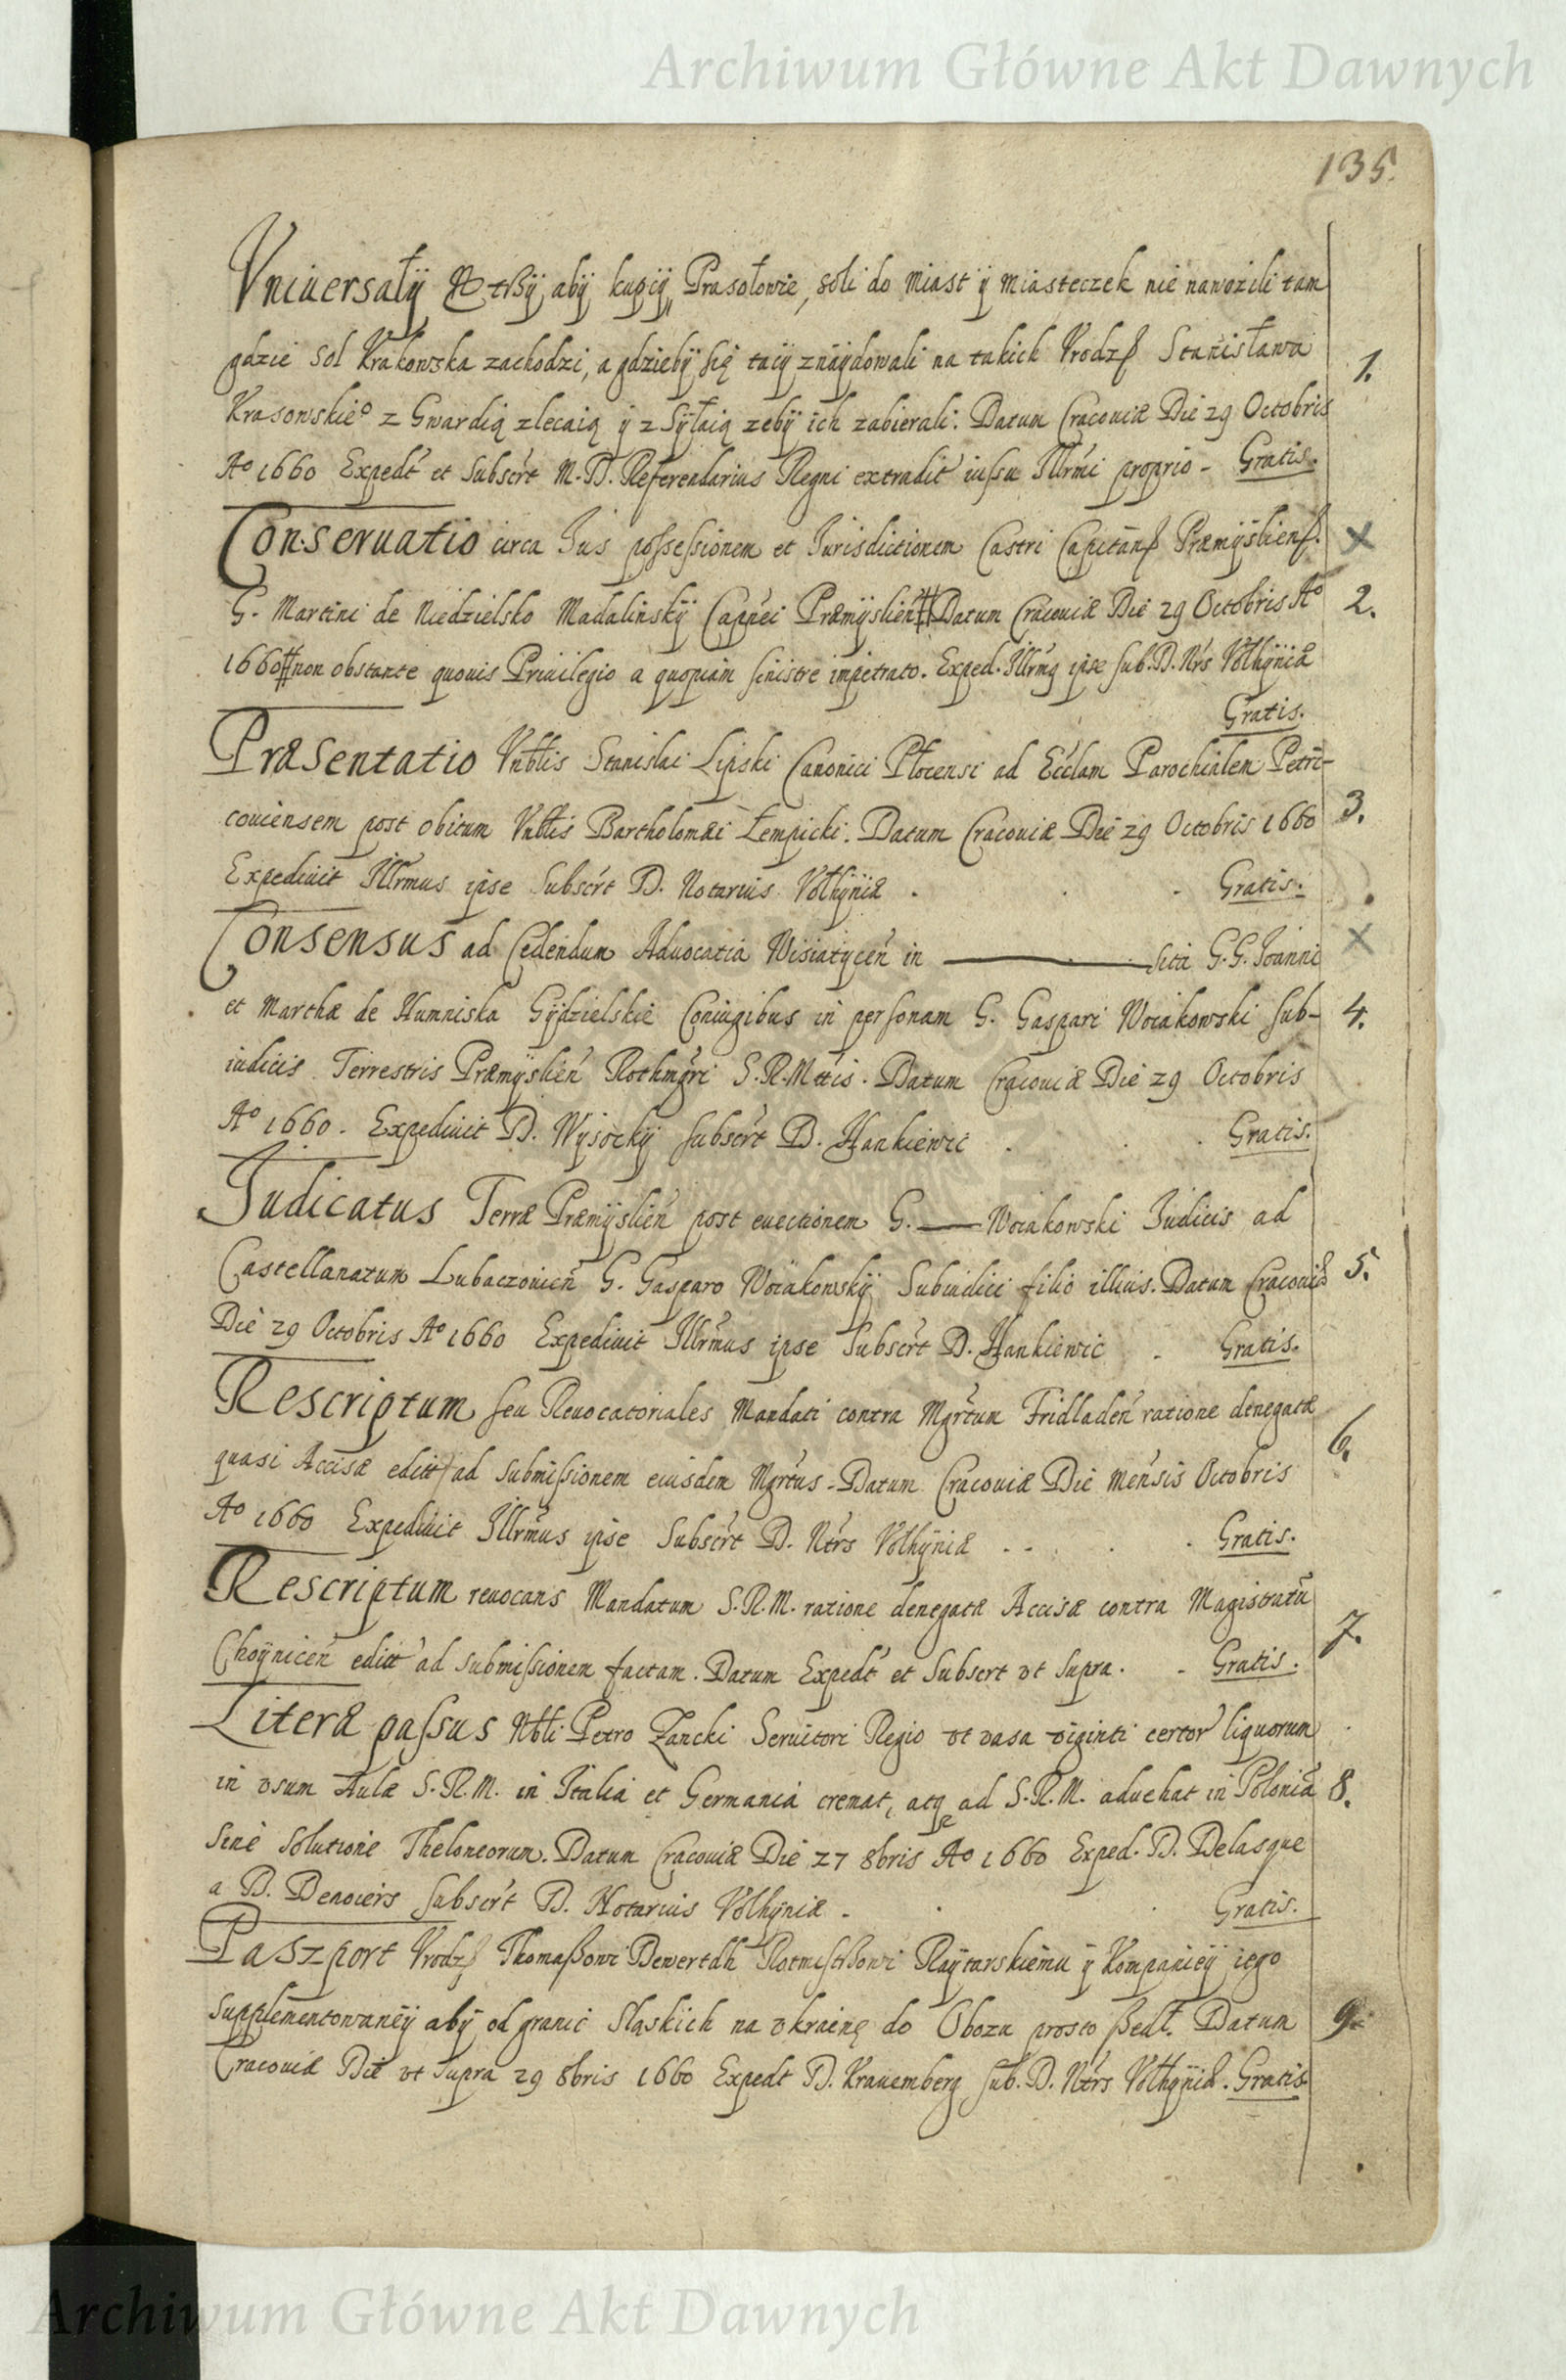 Archiwum Główne Akt Dawnych
135.
Vniuersały aby kupcÿ, Prasołowie, soli do miast ÿ miasteczek nie nawozili tam
gdzie sol Krakowska zachodzi, a gdziebÿ się tacÿ znaÿdowali na takich Vrodz Stanisława 1.
Krasowskie° z Gwardią zlecaią ÿ zsÿłaią zebÿ ich zabierali. Datum Cracouiæ Die 29 Octobris
A° 1660 Expedt et Subscrt M. D. Referendarius Regni extradit iussu Illrmi proprio - Gratis.
Conseruatio circa Jus possessionem et Jurisdictionem Castri Capitan Præmÿslien. x
G. Martini de Niedzielsko Madalinskÿ Capnei Præmÿslien # Datum Cracouiæ Die 29 Octobris A° 2.
1660 # non obstante quouis Priuilegio a quopiam sinistre impetrato. Exped. Illrmg ipse sub. D. Nrs Volhÿniæ
Gratis.
Præsentatio Vnblis Stanislai Lipski Canonici Plocensi ad Ecclam Parochialem Petri-
couiensem post obitum Vnblis Bartholomæi Łempicki. Datum Cracouiæ Die 29 Octobris 1660 3.
Expediuit Illrmus ipse Subscrt D. Notarius Volhÿniæ . . - Gratis.
Consensus ad Cedendum Aduocatia Wisiatycen in ——— sita G. G. Joanni x
et Marthæ de Humniska Gÿdzielskie Coniugibus in personam G. Gaspari Woiakowski sub- 4.
iudicis Terrestris Præmÿslien Rothmgri S. R. Mttis. Datum Cracouiæ Die 29 Octobris
A° 1660. Expediuit D. Wysockÿ subscrt D. Hankiewic . . . Gratis.
Judicatus Terræ Præmÿslien post euectionem G. —— Woiakowski Judicis ad
Castellanatum Lubaczouien G. Gasparo Woiakowskÿ Subiudici filio illius. Datum Cracouiæ 5.
Die 29 Octobris A° 1660 Expediuit Illrmus ipse Subscrt D. Hankiewic . Gratis.
Rescriptum seu Reuocatoriales Mandati contra Mgrtum Fridladen ratione denegatæ
quasi Accisæ editt ad submissionem eiusdem Mgrtus - Datum Cracouiæ Die mensis Octobris 6.
A° 1660 Expediuit Illrmus ipse Subscrt D. Ntrs Volhÿniæ . . . . Gratis.
Rescriptum reuocans Mandatum S. R. M. ratione denegatæ Accisæ contra Magistratu
Choÿnicen editt ad submissionem factam. Datum Expedt et Subscrt vt supra. - Gratis. 7.
Literæ passus Nbli Petro Zancki Seruitori Regio vt vasa viginti certor liquorum
in vsum Aulæ S. R. M. in Italia et Germania cremat, atq ad S. R. M. aduehat in Polonia 8.
sine solutione Theloneorum. Datum Cracouiæ Die 27 8bris A° 1660 Exped. D. Delasque
a D. Denoiers subscrt D. Notarius Volhÿniæ - . . Gratis.
Paszport Vrodz Thomaßowi Dewertdh Rotmistrßowi Raÿtarskiemu ÿ Kompanieÿ iego
supplementowaneÿ abÿ od granic Sląskich na vkrainę do Obozu prosto ßedł. Datum 9.
Cracouiæ Die vt supra 29 8bris 1660 Expedt D. Krauemberg sub. D. Ntrs Volhÿniæ. Gratis
Archiwum Główne Akt Dawnych